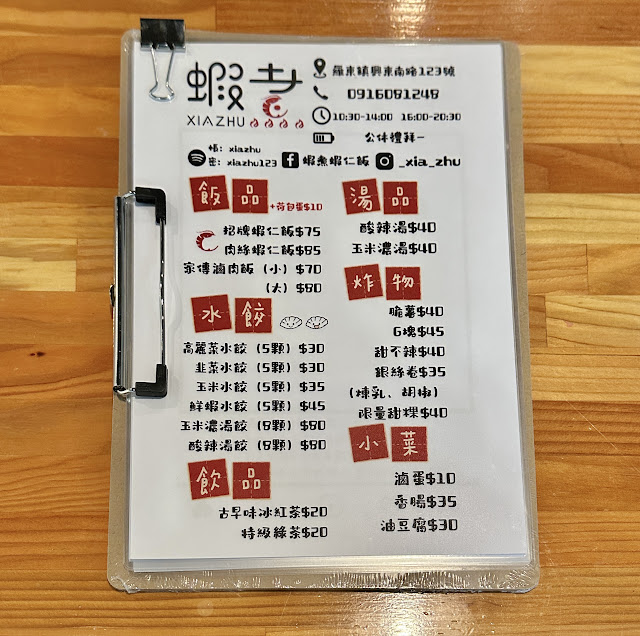 蝦煮
XIAZHU
羅東鎮興東南路123號
0916081248
10:30-14:00 16:00-20:30
公休禮拜一
帳: xiazhu
密: xiazhu123
蝦煮蝦仁飯
_xia_zhu
飯品
+荷包蛋$10
招牌蝦仁飯$75
肉絲蝦仁飯$85
家傳滷肉飯 (小) $70
(大) $80
水餃
高麗菜水餃 (5顆) $30
韭菜水餃 (5顆) $30
玉米水餃 (5顆) $35
鮮蝦水餃 (5顆) $45
玉米濃湯餃 (8顆) $80
酸辣湯餃 (8顆) $80
飲品
古早味冰紅茶$20
特級綠茶$20
湯品
酸辣湯$40
玉米濃湯$40
炸物
脆薯$40
G塊$45
甜不辣$40
銀絲卷$35
(煉乳、胡椒)
限量甜粿$40
小菜
滷蛋$10
香腸$35
油豆腐$30